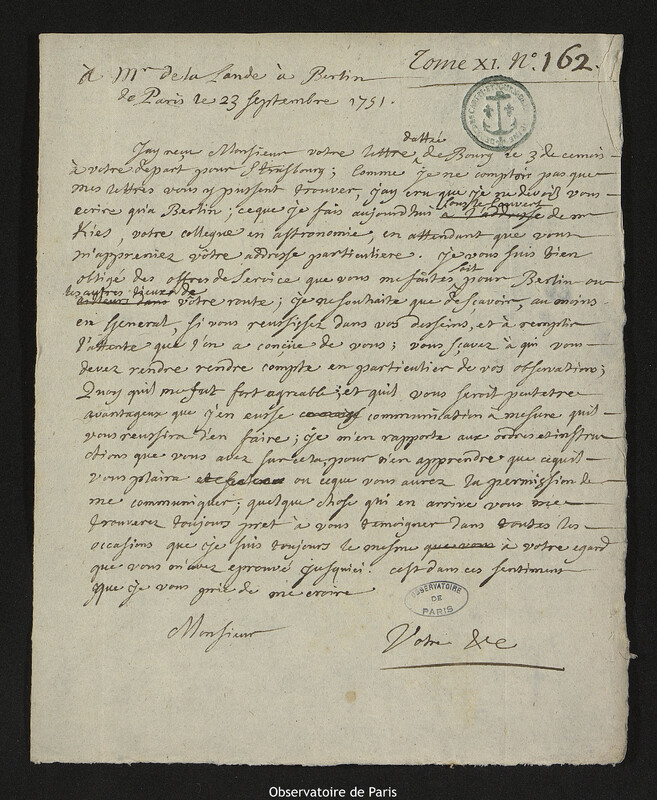 Tome XI. N.º 162.
à Mr de la Lande à Berlin
de Paris le 23 septembre 1751.
dattée
Jay reçu Monsieur votre lettre de Bourg le 3 de ce mois
à votre départ pour Strasbourg ; comme je ne comptois pas que
mes lettres vous y pussent trouver, j'ay cru que je ne devois vous
ecrire qu'a Berlin ; ce que je fais aujourdhui sous le couvert a l'addresse de mr
Kies, votre collegue en astronomie, en attendant que vous
m'appreniez vôtre addresse particuliere. Je vous suis bien
obligé des offres de service que vous me faites soit pour Berlin ou
les autres lieux de
ailleurs dans vôtre route ; je ne souhaite que de sçavoir, au moins
en general, si vous reussissez dans vos desseins, et à remplir
l'attente que l'on a conçüe de vous ; vous sçavez à qui vous
devez rendre rendre compte en particulier de vos observations ;
Quoy quil me fut fort agreable, et quil vous seroit peutetre
avantageux que j'en eusse communication à mesure quil
vous reussira d'en faire ; je m'en rapporte aux ordres et instru
ctions que vous avez sur cela, pour n'en apprendre que ce quil
vous plaira ou ce que vous aurez la permission de
me communiquer ; quelque chose qui en arrive vous me
trouverez toujours pret a vous temoigner dans toutes les
occasions que je suis toujours le mesme que vous à votre egard
que vous m'avez eprouvé jusquici. c'est dans ces sentiment
que je vous prie de me croire
Monsieur
Votre &c
OBSERVATOIRE
DE
PARIS
Observatoire de Paris